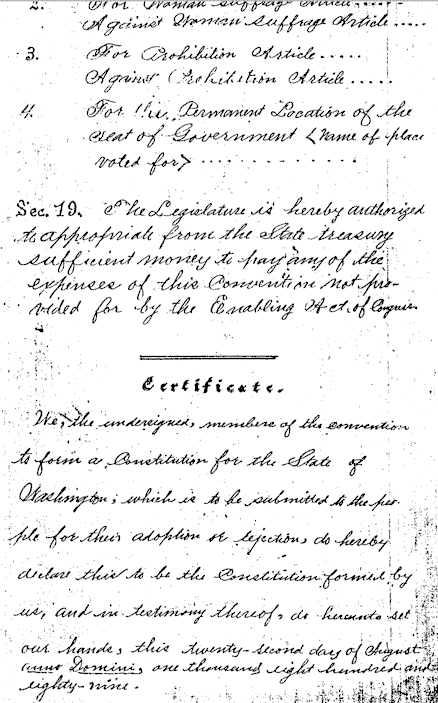 2. For Woman Suffrage Article.....
Against Woman Suffrage Article.....
3. For Prohibition Article.....
Against Prohibition Article.....
4. For the Permanent Location of the
seat of Government <Name of place
voted for> . . . . . . . . . . . .
Sec. 19. The Legislature is hereby authorized
to appropriate from the State treasury
sufficient money to pay any of the
expenses of this Convention not pro-
vided for by the Enabling Act of Congress.
Certificate.
We, the undersigned, members of the convention
to form a Constitution for the State of
Washington; which is to be submitted to the peo-
ple for their adoption or rejection, do hereby
declare this to be the Constitution formed by
us, and in testimony thereof, do hereunto set
our hands, this twenty-second day of August
anno Domini, one thousand eight hundred and
eighty-nine.